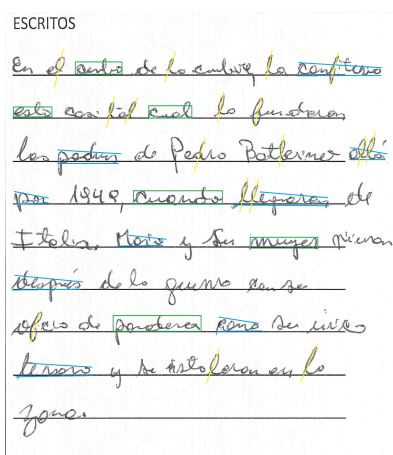 ESCRITOS
En el centro de la cumbre, la confiteria
esta casi tal cual la fundaron
los padres de Pedro Batleiner allá
por 1948, cuando llegaron de
Italia. Mario y su mujer
después de la guerra con su
oficio de panadero como su único
tesoro y se instalaron en la
zona.